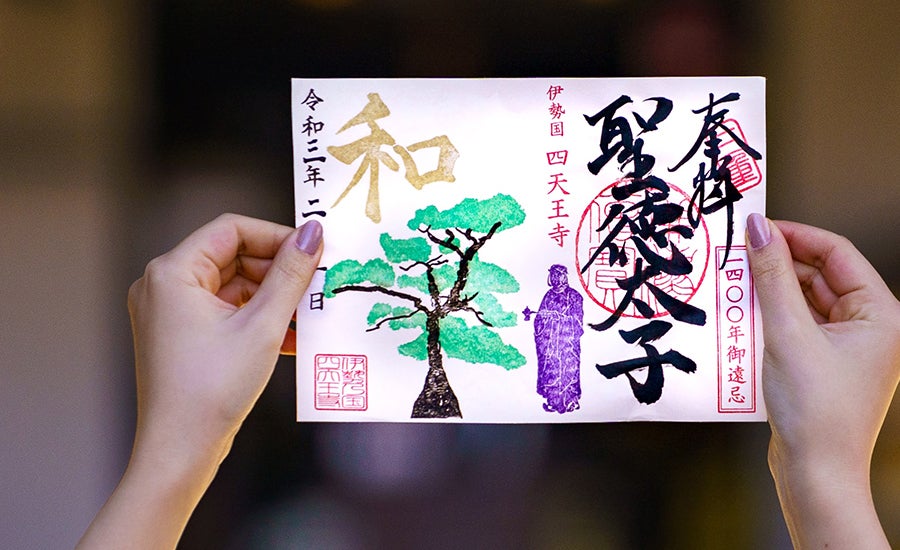 奉拝
一四〇〇年御遠忌
聖徳太子
伊勢国 四天王寺
和
令和三年 二 日
伊勢乃国
四天王寺